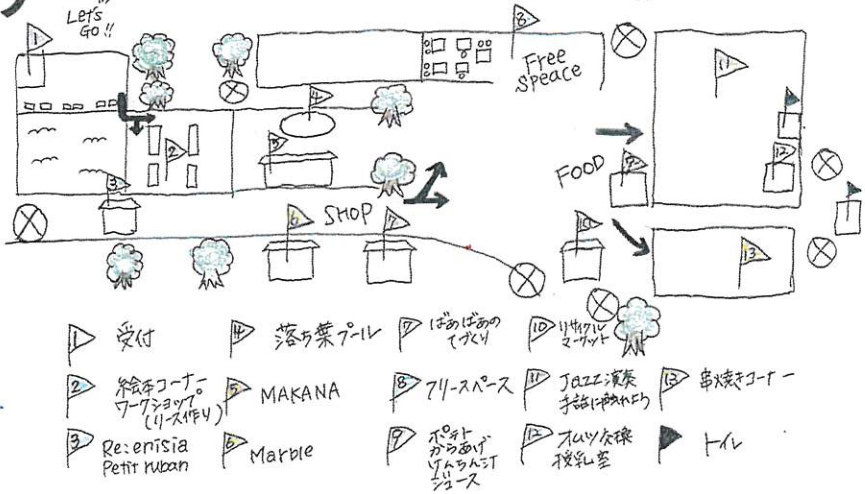 Let's
GO!!
1
8
Free
speace
11
4
2
5
3
FOOD
9
12
6
SHOP
7
10
13
1 受付
4 落ち葉プール
7 ばあばあの
てづくり
10 リサイクル
マーケット
2 絵本コーナー
ワークショップ
(リース作り)
5 MAKANA
8 フリースペース
11 Jazz演奏
手話に触れよう
13 串焼きコーナー
3 Re:enisia
Petit ruban
6 Marble
9 ポテト
からあげ
けんちん汁
ジュース
12 オムツ交換
授乳室
トイレ